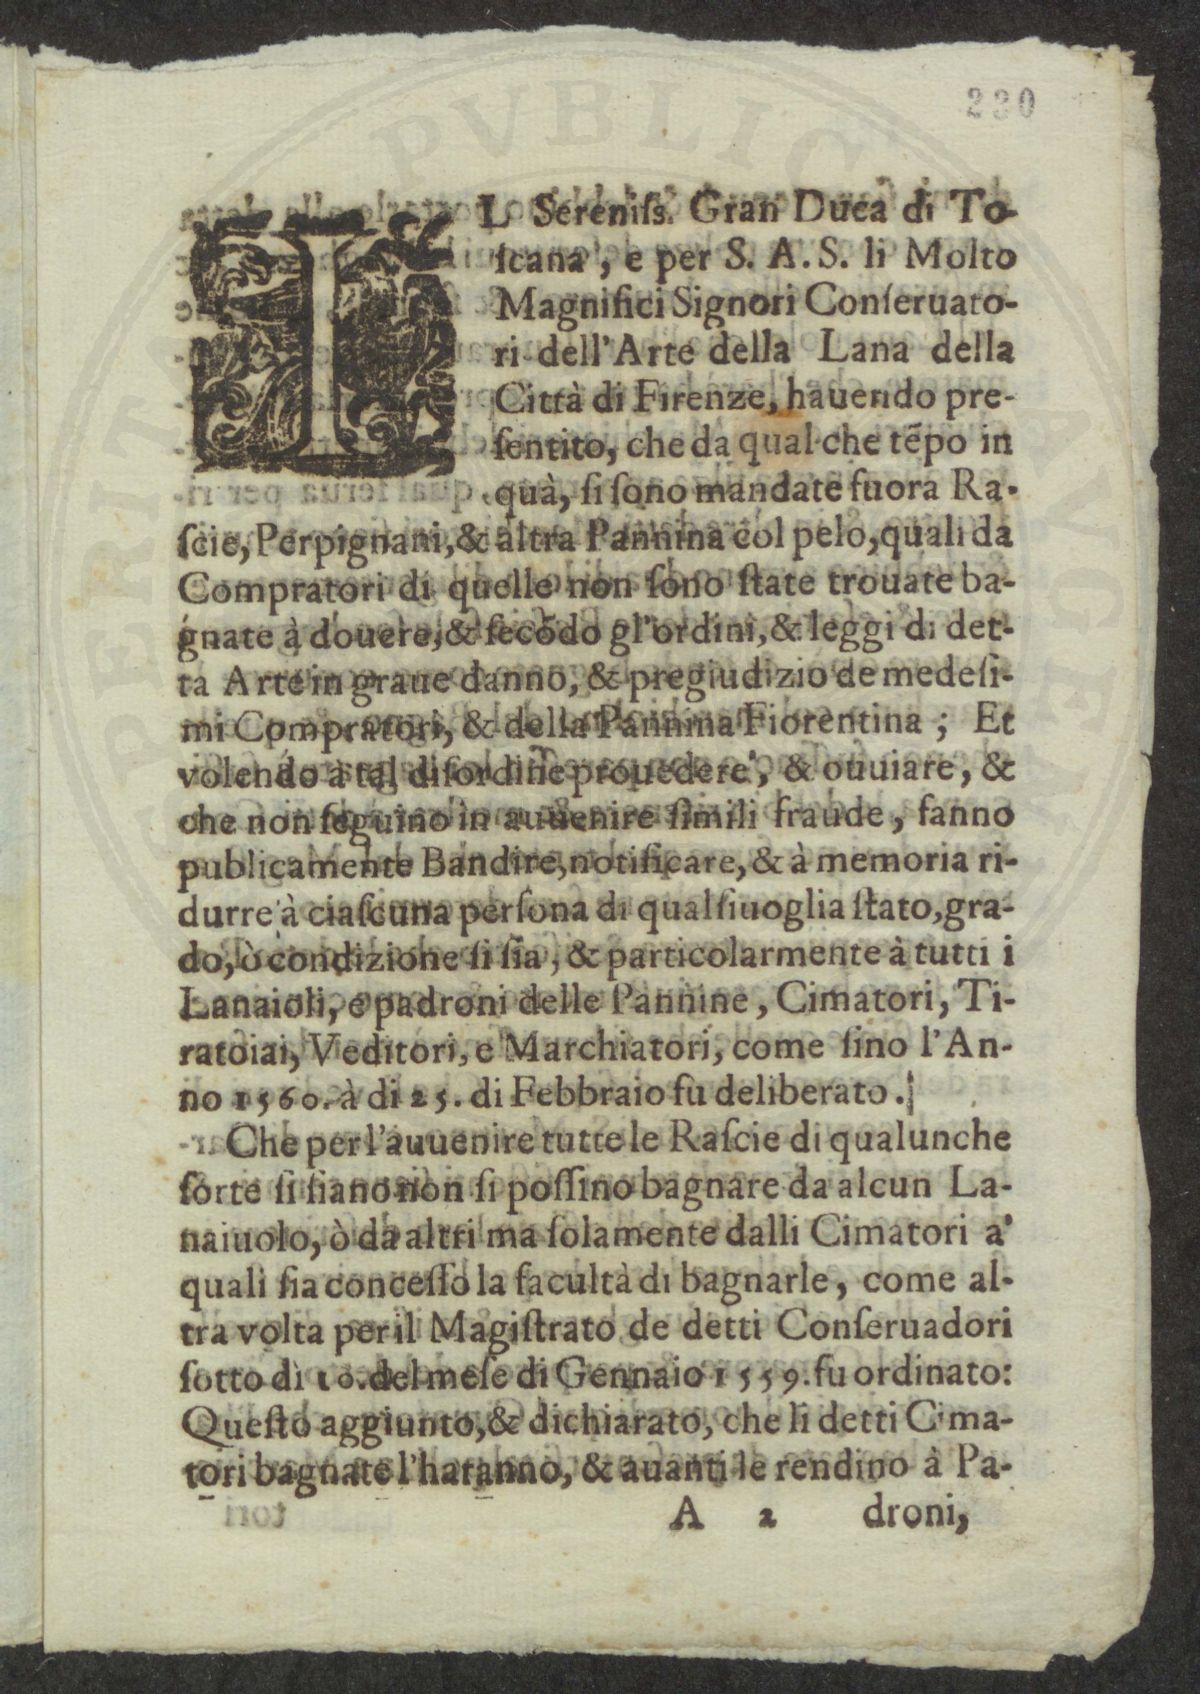 230
IL Sereniſs. Gran Duca di To-
ſcana, e per S. A. S. li Molto
Magnifici Signori Conſeruato-
ri dell'Arte della Lana della
Città di Firenze, hauendo pre-
ſentito, che da qual che tẽpo in
quà, ſi ſono mandate fuora Ra-
ſcie, Perpignani, & altra Pannina col pelo, quali da
Compratori di quelle non ſono ſtate trouate ba-
gnate à douere, & ſecõdo gl'ordini, & leggi di det-
ta Arte in graue danno, & pregiudizio de medeſi-
mi Compratori, & della Pannina Fiorentina ; Et
volendo à tal diſordine prouedere, & ouuiare, &
che non ſeguino in auuenire ſimili fraude, fanno
publicamente Bandire, notificare, & à memoria ri-
durre à ciaſcuna perſona di qualſiuoglia ſtato, gra-
do, ò condizione ſi ſia, & particolarmente à tutti i
Lanaioli, e padroni delle Pannine, Cimatori, Ti-
ratoiai, Veditori, e Marchiatori, come ſino l'An-
no 1560. à di 25. di Febbraio fu deliberato.
Che per l'auuenire tutte le Raſcie di qualunche
ſorte ſi ſiano non ſi poſſino bagnare da alcun La-
naiuolo, ò da altri ma ſolamente dalli Cimatori a'
quali ſia conceſſo la facultà di bagnarle, come al-
tra volta per il Magiſtrato de detti Conſeruadori
ſotto dì 10. del meſe di Gennaio 1559. fu ordinato:
Queſto aggiunto, & dichiarato, che li detti Cima-
tori bagnate l'haranno, & auanti le rendino à Pa-
A 2 droni,